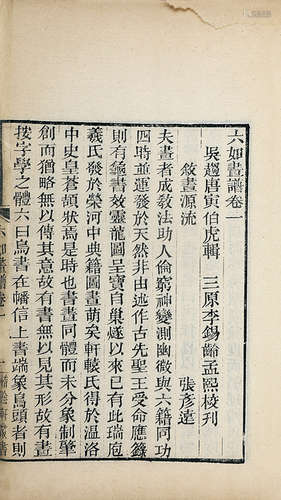 六如畫譜卷一
吳趨唐寅伯虎輯 三原李錫齡孟熙校刊
敘畫源流 張彥遠
夫畫者成敎法助人倫窮神變測幽微與六籍同功
四時並運發於天然非由述作古先聖王受命應籙
則有龜書效靈龍圖呈寶自巢燧以來已有此瑞庖
羲氏發於榮河中典籍圖畫萌矣軒轅氏得於溫洛
中史皇蒼頡狀焉是時也書畫同體而未分象制肇
創而猶略無以傳其意故有書無以見其形故有畫
按字學之體六曰鳥書在幡信上書端象鳥頭者則
六如畫譜卷一
一
惜陰軒叢書